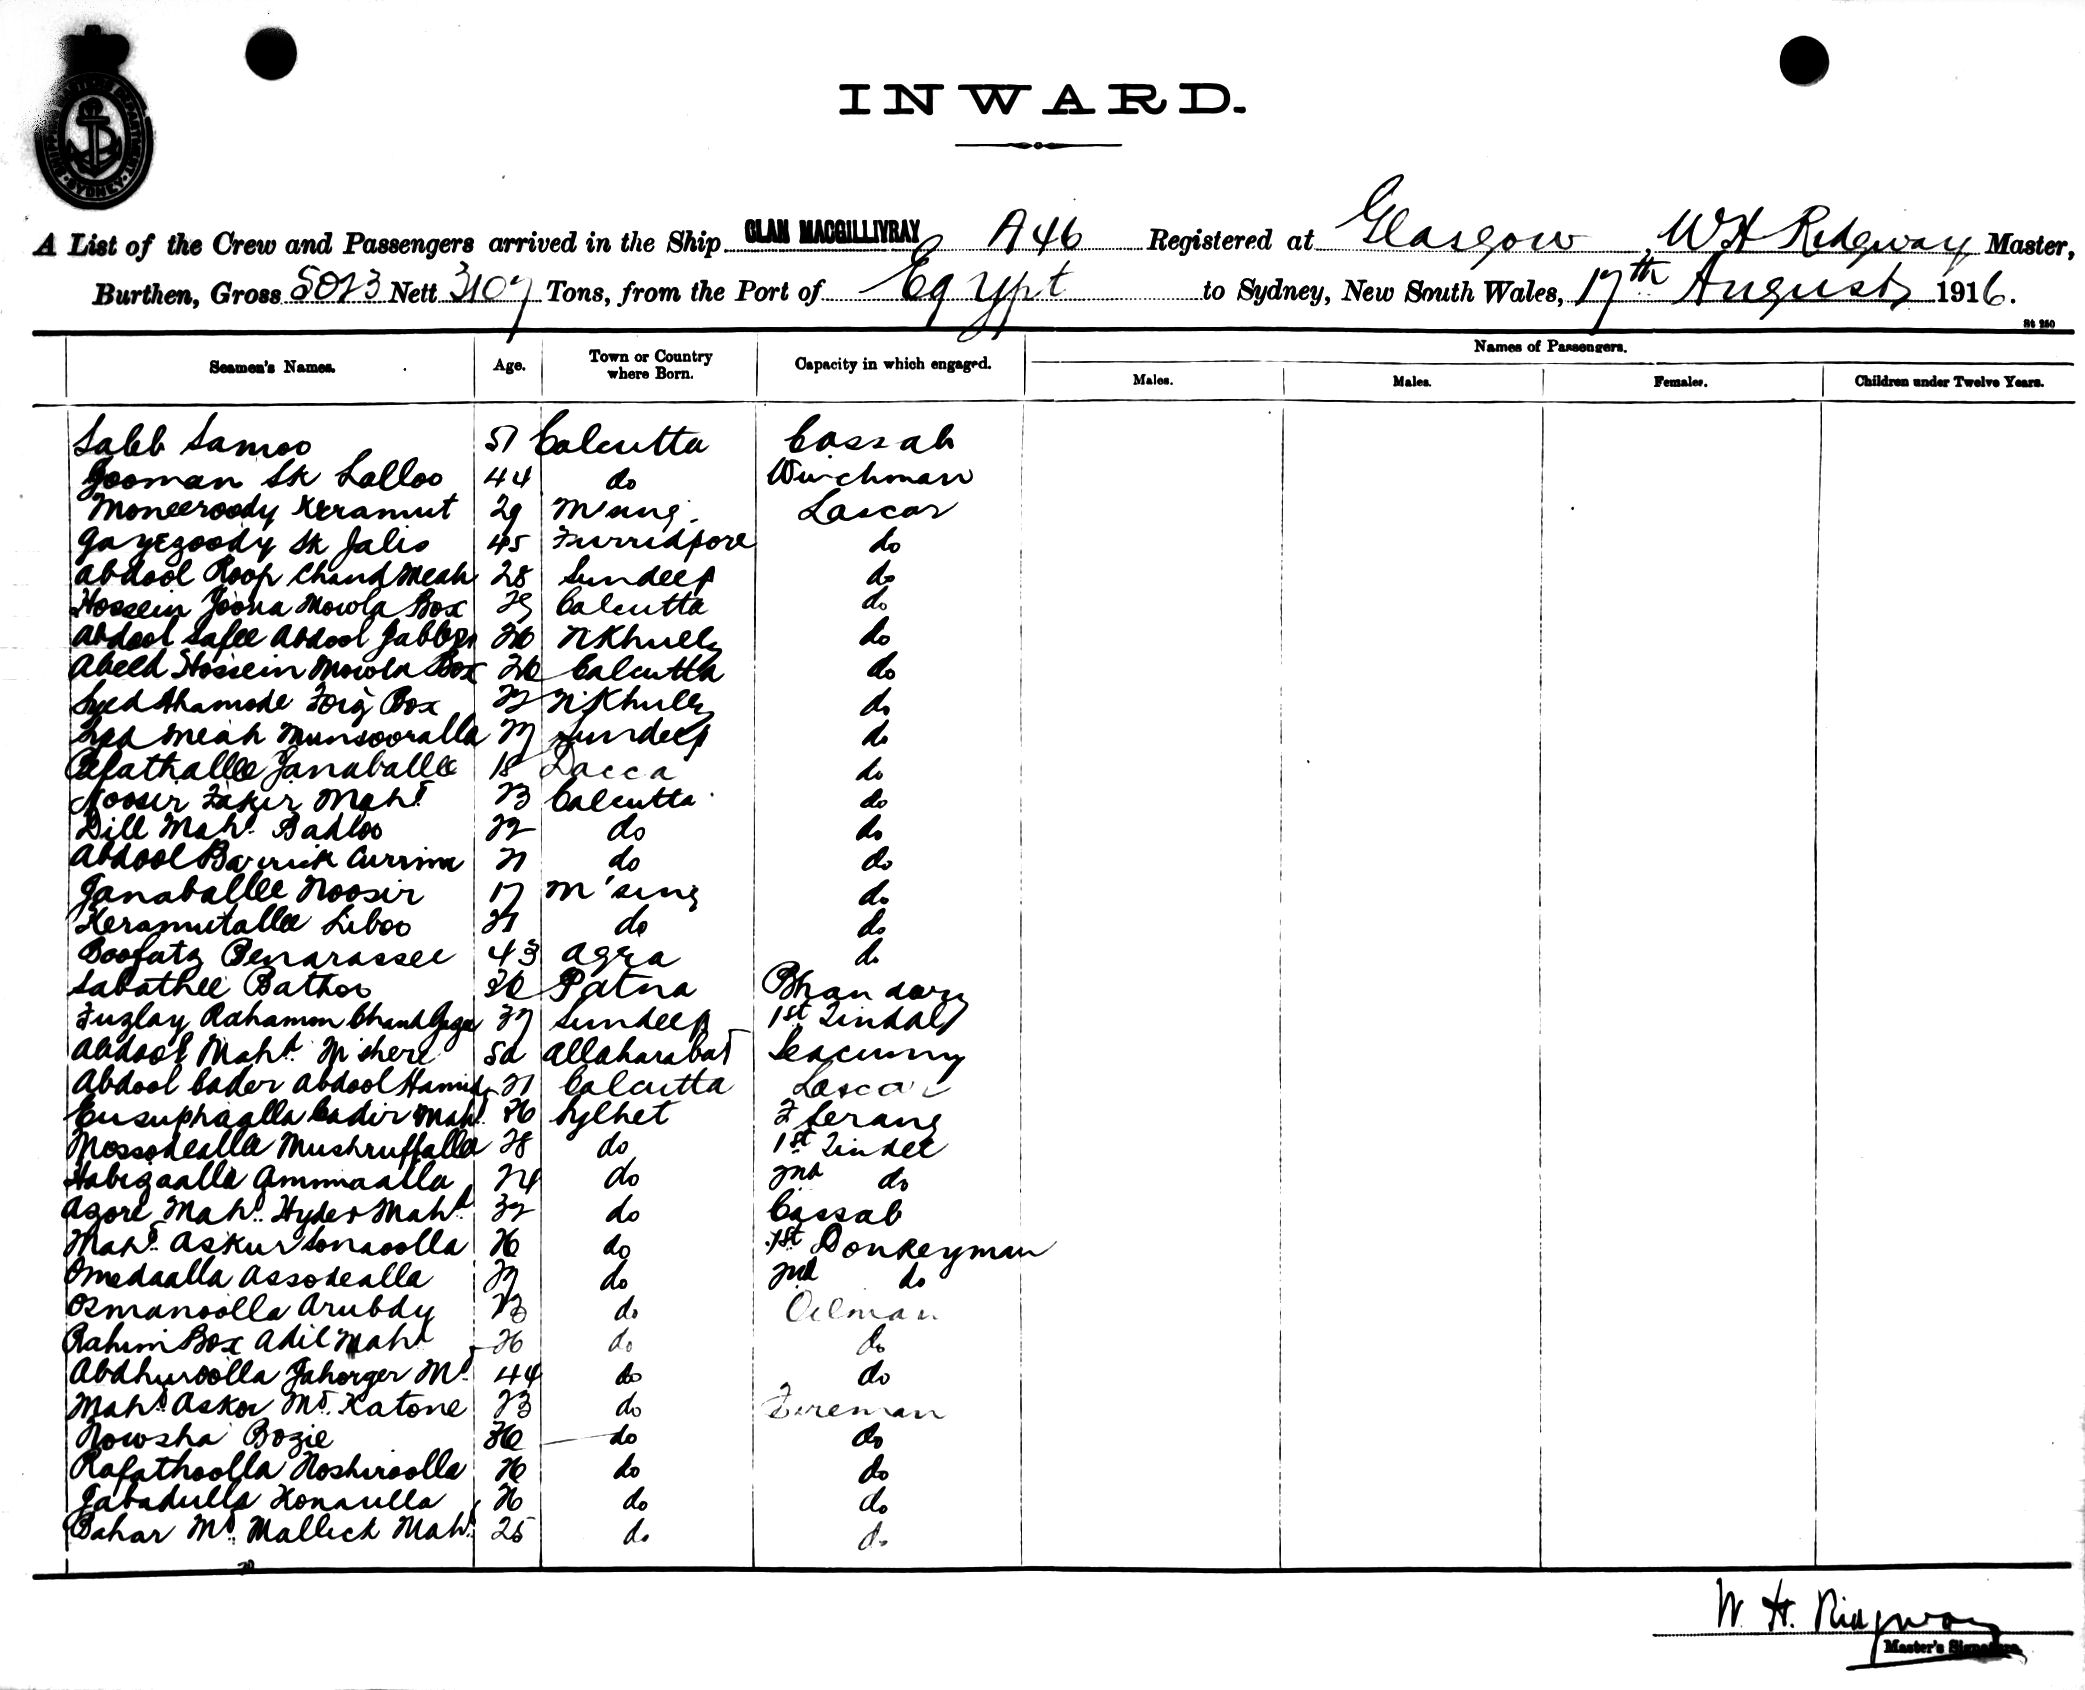 INWARD.
A List of the Crew and Passengers arrived in the Ship CLAN MACGILLIVRAY A46 Registered at Glasgow, W H Ridgway Master,
Burthen, Gross 5023 Nett 3107 Tons, from the Port of Egypt to Sydney, New South Wales, 17th August 1916.
St 250
Seamen's Names. Age. Town or Country where Born. Capacity in which engaged. Names of Passengers.
Males. Males. Females. Children under Twelve Years.
Saleb Samoo 51 Calcutta Cassab
Jooman Sk Lalloo 44 do Winchman
Moneeroody Keramut 29 M'sing. Lascar
Gayezoody Sk Jalis 45 Furridpore do
Abdool Roop Chand Meah 28 Sundeep do
Hossein Joona Mowla Box 29 Calcutta do
Abdool Safee Abdool Jabber 26 N'Khully do
Abeed Hossein Mowla Box 26 Calcutta do
Syed Ahamode Foig Box 22 N'Khully do
Meah Munsooralla 27 Sundeep do
Refathallee Janaballee 18 Dacca do
Noosir Fakir Mahd 23 Calcutta do
Dill Mahd. Badloo 22 do do
Abdool Barrick Currim 21 do do
Janaballee Noosir 17 M'sing do
Keramutallee Liboo 21 do do
Boofatg Benarassee 43 Agra do
Sabathee Bathoo 36 Patna Bhandary
Fuzlay Rahamon Chand Gaze 37 Sundeep 1st Tindal
Abdool Mahd. M'shere 52 Allaharabad Seacunny
Abdool Cader Abdool Hamid 21 Calcutta Lascar
Eusuphaalla Cadir Mahd. 36 Sylhet F Serang
Mossodealla Mushruffalla 28 do 1st Tindel
Habizaalla Ammaalla 24 do 2nd do
Asore Mahd. Hyder Mahd. 32 do Cassab
Mahd. Askur Sonaoolla 26 do 1st Donkeyman
Omedaalla Assodealla 27 do 2nd do
Osmanoolla Arubdy 23 do Oilman
Rahim Box Adil Mahd 26 do do
Abdhuroolla Jahorger Md. 44 do do
Mahd. Askor Md. Katone 23 do Fireman
Nowsha Bozie 36 do do
Rafathoolla Noshiroolla 26 do do
Jabadulla Konaulla 26 do do
Bahar Md. Mallick Mahd. 25 do do
W. H. Ridgway
Master's Signature.